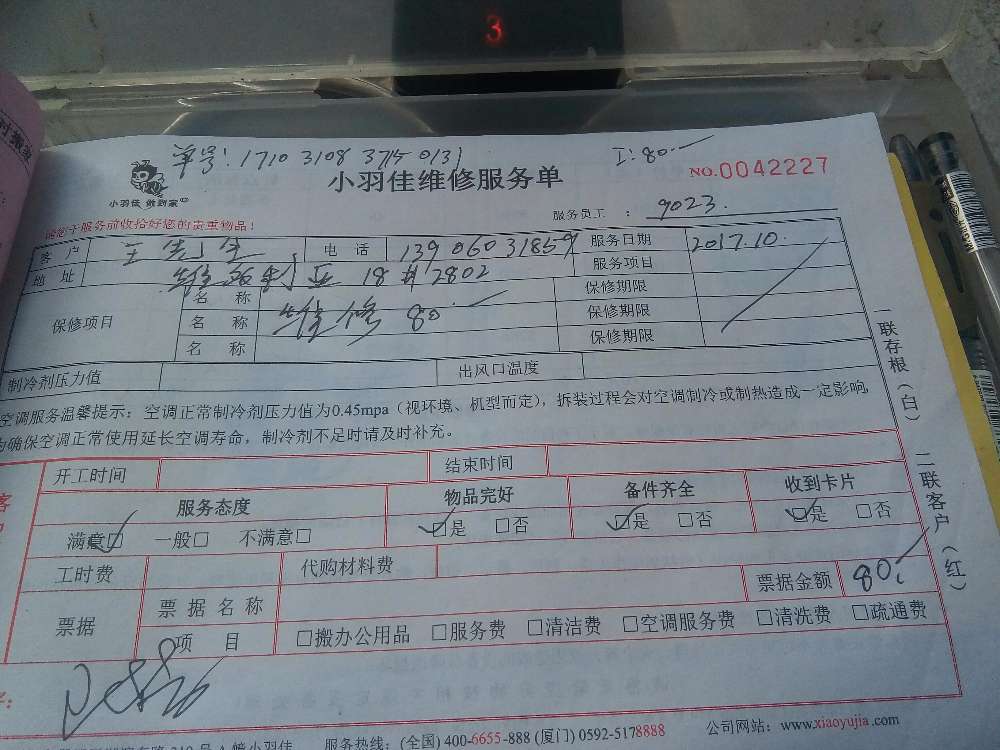 3
单号：1710 3108 3715 0131 I：80.—
小羽佳 做到家
小羽佳维修服务单 NO.0042227
请您于服务前收拾好您的贵重物品！ 服务员工 ： 9023.
客 户 王先生 电 话 13906031859 服务日期 2017.10
地 址 18#2802 服务项目
保修项目 名 称 保修期限
名 称 维修 80 保修期限
名 称 保修期限
制冷剂压力值 出风口温度
空调服务温馨提示：空调正常制冷剂压力值为0.45mpa（视环境、机型而定），拆装过程会对空调制冷或制热造成一定影响，
为确保空调正常使用延长空调寿命，制冷剂不足时请及时补充。
开工时间 结束时间
服务态度 物品完好 备件齐全 收到卡片
满意☑ 一般□ 不满意□ ☑是 □否 ☑是 □否 ☑是 □否
工时费 代购材料费
票据 票据名称 票据金额 80.
项 目 □搬办公用品 □服务费 □清洁费 □空调服务费 □清洗费 □疏通费
一联存根（白） 二联客户（红）
小羽佳 服务热线：(全国) 400-6655-888 (厦门) 0592-5178888 公司网站：www.xiaoyujia.com